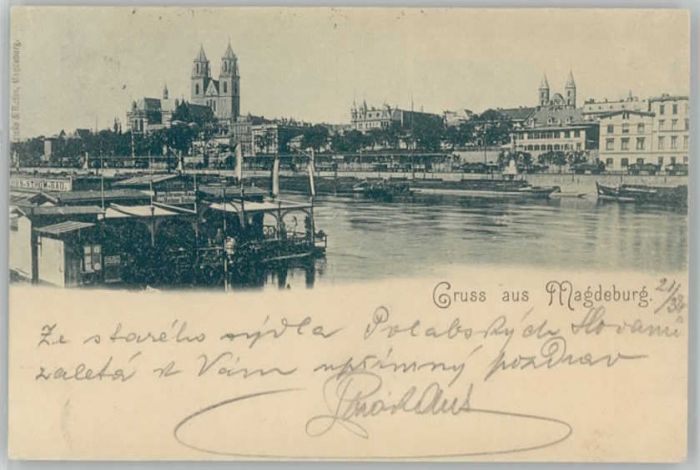 Gruss aus Magdeburg.
21/3
Ze starého sýdla Polabských Slovanů
zaletá k Vám upřímný pozdrav